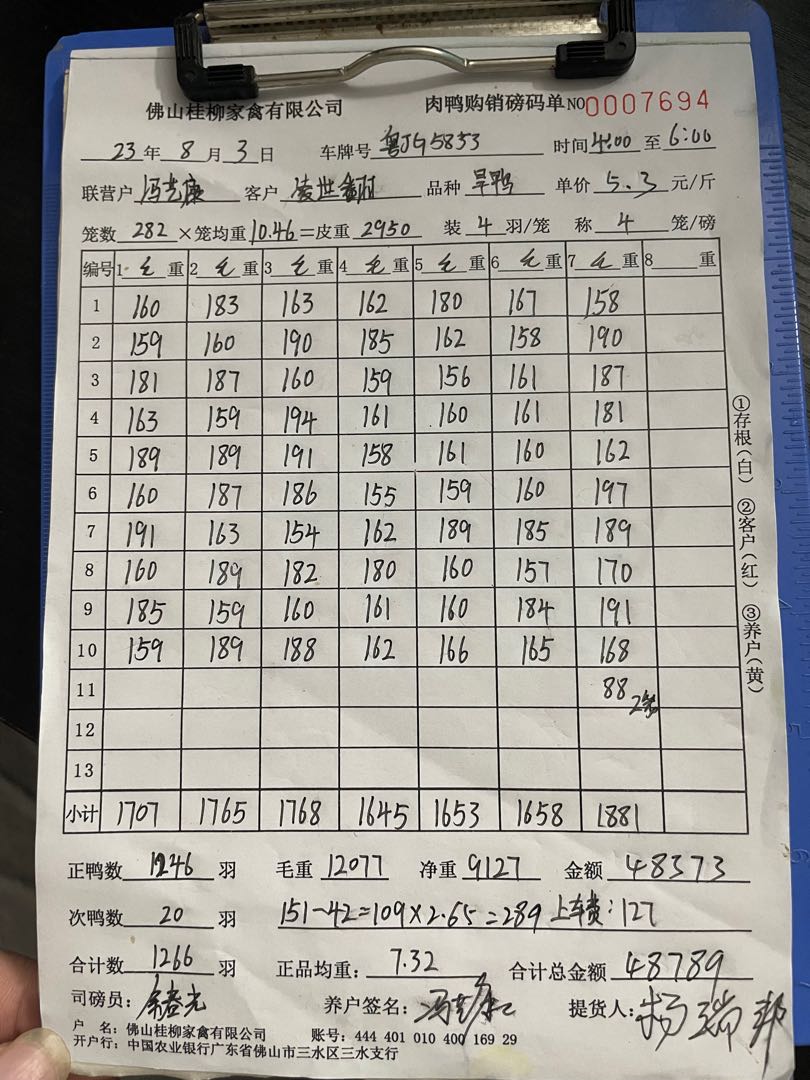 佛山桂柳家禽有限公司 肉鸭购销磅码单 NO 0007694
23 年 8 月 3 日 车牌号 粤JG5853 时间 4:00 至 6:00
联营户 客户 品种 旱鸭 单价 5.3 元/斤
笼数 282 ×笼均重 10.46 =皮重 2950 装 4 羽/笼 称 4 笼/磅
编号 1 毛 重 2 毛 重 3 毛 重 4 毛 重 5 毛 重 6 毛 重 7 毛 重 8 重
1 160 183 163 162 180 167 158
2 159 160 190 185 162 158 190
3 181 187 160 159 156 161 187
4 163 159 194 161 160 161 181
5 189 189 191 158 161 160 162
6 160 187 186 155 159 160 197
7 191 163 154 162 189 185 189
8 160 189 182 180 160 157 170
9 185 159 160 161 160 184 191
10 159 189 188 162 166 165 168
11 88 2笼
12
13
小计 1707 1765 1768 1645 1653 1658 1881
正鸭数 1246 羽 毛重 12077 净重 9127 金额 48373
次鸭数 20 羽 151-42=109×2.65=289 上车费:127
合计数 1266 羽 正品均重: 7.32 合计总金额 48789
司磅员: 养户签名: 提货人: 杨瑞邦
户 名: 佛山桂柳家禽有限公司 账号: 444 401 010 400 169 29
开户行: 中国农业银行广东省佛山市三水区三水支行
①存根(白) ②客户(红) ③养户(黄)